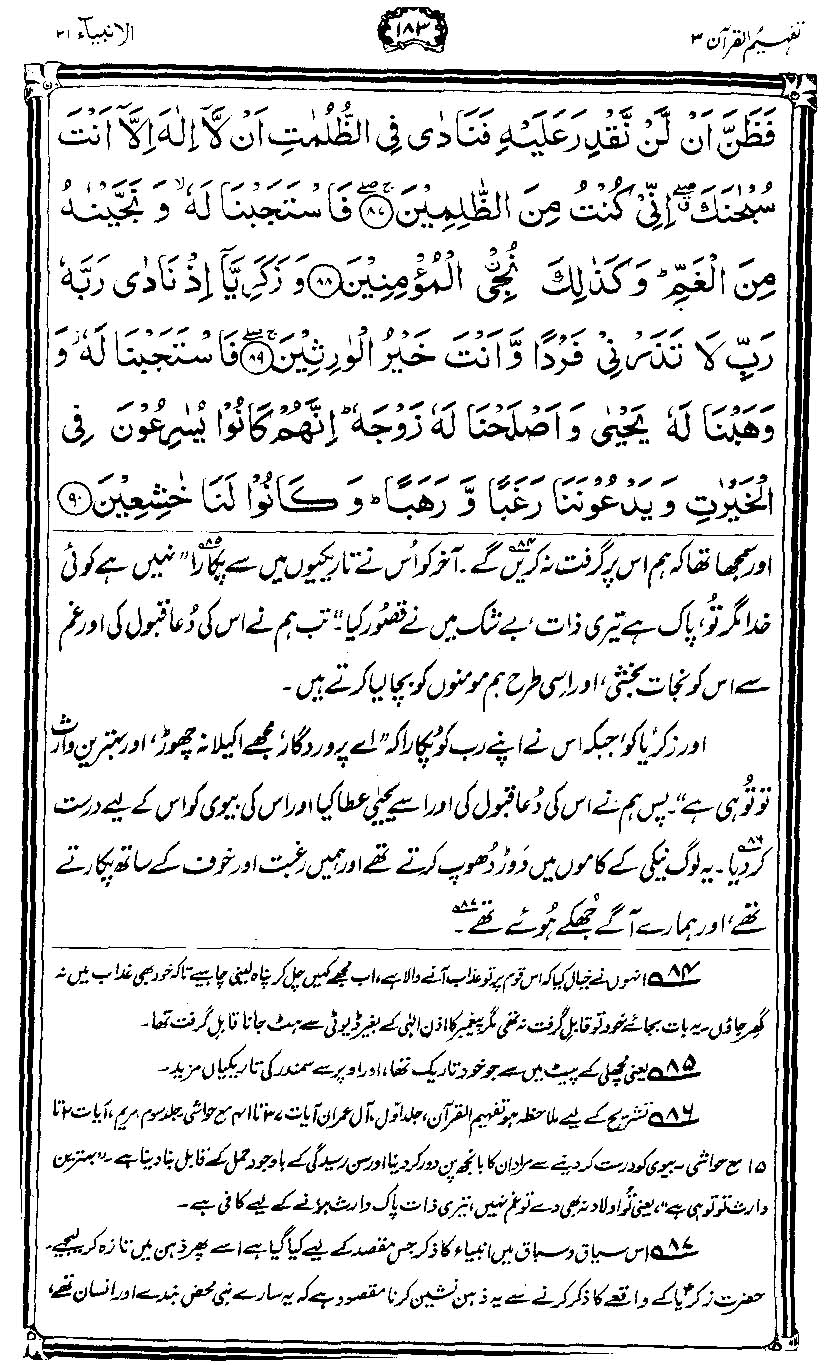 تفہیم القرآن ۳
۱۸۳
الانبیآء ۲۱
فَظَنَّ اَنْ لَّنْ نَّقْدِرَ عَلَيْهِ فَنَادٰى فِي الظُّلُمٰتِ اَنْ لَّاۤ اِلٰهَ اِلَّاۤ اَنْتَ
سُبْحٰنَكَ ۖۗ اِنِّيْ كُنْتُ مِنَ الظّٰلِمِيْنَ ۚۖ ﴿۸۷﴾ فَاسْتَجَبْنَا لَهٗ ۙ وَ نَجَّيْنٰهُ
مِنَ الْغَمِّ ؕ وَ كَذٰلِكَ نُـنْجِي الْمُؤْمِنِيْنَ ﴿۸۸﴾ وَ زَكَرِيَّاۤ اِذْ نَادٰى رَبَّهٗ
رَبِّ لَا تَذَرْنِيْ فَرْدًا وَّ اَنْتَ خَيْرُ الْوٰرِثِيْنَ ۚۖ ﴿۸۹﴾ فَاسْتَجَبْنَا لَهٗ ؗ وَ
وَهَبْنَا لَهٗ يَحْيٰى وَ اَصْلَحْنَا لَهٗ زَوْجَهٗ ؕ اِنَّهُمْ كَانُوْا يُسٰرِعُوْنَ فِي
الْخَيْرٰتِ وَ يَدْعُوْنَنَا رَغَبًا وَّ رَهَبًا ؕ وَ كَانُوْا لَنَا خٰشِعِيْنَ ﴿۹۰﴾
اور سمجھا تھا کہ ہم اس پر گرفت نہ کریں گے ۸۴۔ آخر کو اُس نے تاریکیوں میں سے پکارا ۸۵ ”نہیں ہے کوئی
خدا مگر تُو، پاک ہے تیری ذات، بے شک میں نے قصور کیا“۔ تب ہم نے اس کی دُعا قبول کی اور غم
سے اس کو نجات بخشی، اور اِسی طرح ہم مومنوں کو بچا لیا کرتے ہیں۔
اور زکریّا کو، جبکہ اس نے اپنے رب کو پُکارا کہ ”اے پروردگار، مجھے اکیلا نہ چھوڑ، اور بہترین وارث
تو تُو ہی ہے“۔ پس ہم نے اس کی دُعا قبول کی اور اسے یحییٰ عطا کیا اور اس کی بیوی کو اس کے لیے درست
کر دیا ۸۶۔ یہ لوگ نیکی کے کاموں میں دَوڑ دُھوپ کرتے تھے اور ہمیں رغبت اور خوف کے ساتھ پکارتے
تھے، اور ہمارے آگے جُھکے ہُوئے تھے ۸۷۔
۸۴ انہوں نے خیال کیا کہ اس قوم پر تو عذاب آنے والا ہے، اب مجھے کہیں چل کر پناہ لینی چاہیے تاکہ خود بھی عذاب میں نہ
گھِر جاؤں۔ یہ بات بجائے خود تو قابلِ گرفت نہ تھی مگر پیغمبر کا اذنِ الٰہی کے بغیر ڈیوٹی سے ہٹ جانا قابلِ گرفت تھا۔
۸۵ یعنی مچھلی کے پیٹ میں سے جو خود تاریک تھا، اور اوپر سے سمندر کی تاریکیاں مزید۔
۸۶ تشریح کے لیے ملاحظہ ہو تفہیم القرآن، جلد اوّل، آل عمران آیات ۳۷ تا ۴۱ مع حواشی جلد سوم، مریم، آیات ۲ تا
۱۵ مع حواشی۔ بیوی کو درست کر دینے سے مراد ان کا بانجھ پن دور کر دینا اور سن رسیدگی کے باوجود حمل کے قابل بنا دینا ہے۔ ”بہترین
وارث تو تو ہی ہے“، یعنی تُو اولاد نہ بھی دے تو غم نہیں، تیری ذات پاک وارث ہونے کے لیے کافی ہے۔
۸۷ اس سیاق و سباق میں انبیاء کا ذکر جس مقصد کے لیے کیا گیا ہے اسے پھر ذہن میں تازہ کر لیجیے۔
حضرت زکریّا کے واقعے کا ذکر کرنے سے یہ ذہن نشین کرنا مقصود ہے کہ یہ سارے نبی محض بندے اور انسان تھے،